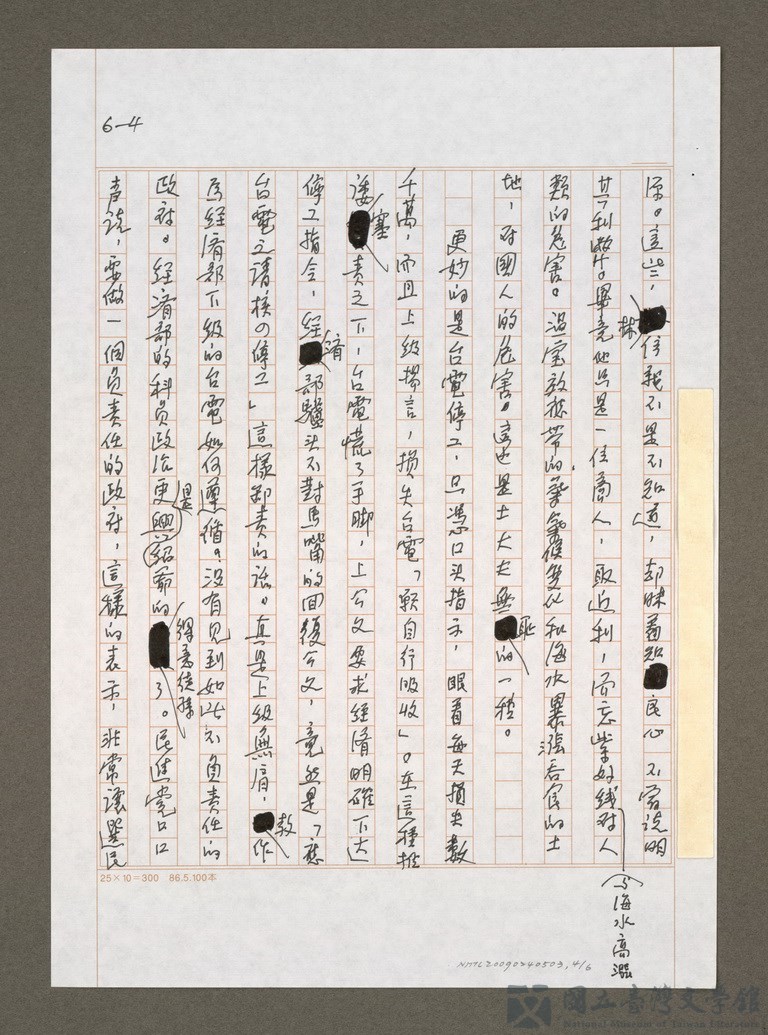 6-4
源。這些，林信義不是不知道，却昧着知良心不寄說明
其利弊。畢竟他只是一位商人，取近利，而忘紫外线对人
類的危害。溫室效應帶的氣候變化和海水暴漲吞食的土
地，对國人的危害。這也是士大夫無恥的一種。
更妙的是台電停工，只憑口头指示，眼看每天損失數
千萬，而且上級揚言，損失台電「願自行吸收」。在這種推
諉塞責之下，台電慌了手脚，上公文要求經濟明確下达
停工指令，經濟部驢头不對馬嘴的回復公文，竟然是「應
台電之請核の停工」這樣卸責的話。真是上級無肩，教作
為經濟部下級的台電如何遵循。沒有見到如此不負責任的
政府。經濟部的科員政治更是紹爺的得意徒孫了。民進党口口
声說，要做一個負責任的政府，這樣的表示，非常讓選民
与海水高漲
25×10=300 86.5.100本
NMTL20090240503,4/6
國立臺灣文學館
National Museum of Taiwan Literature